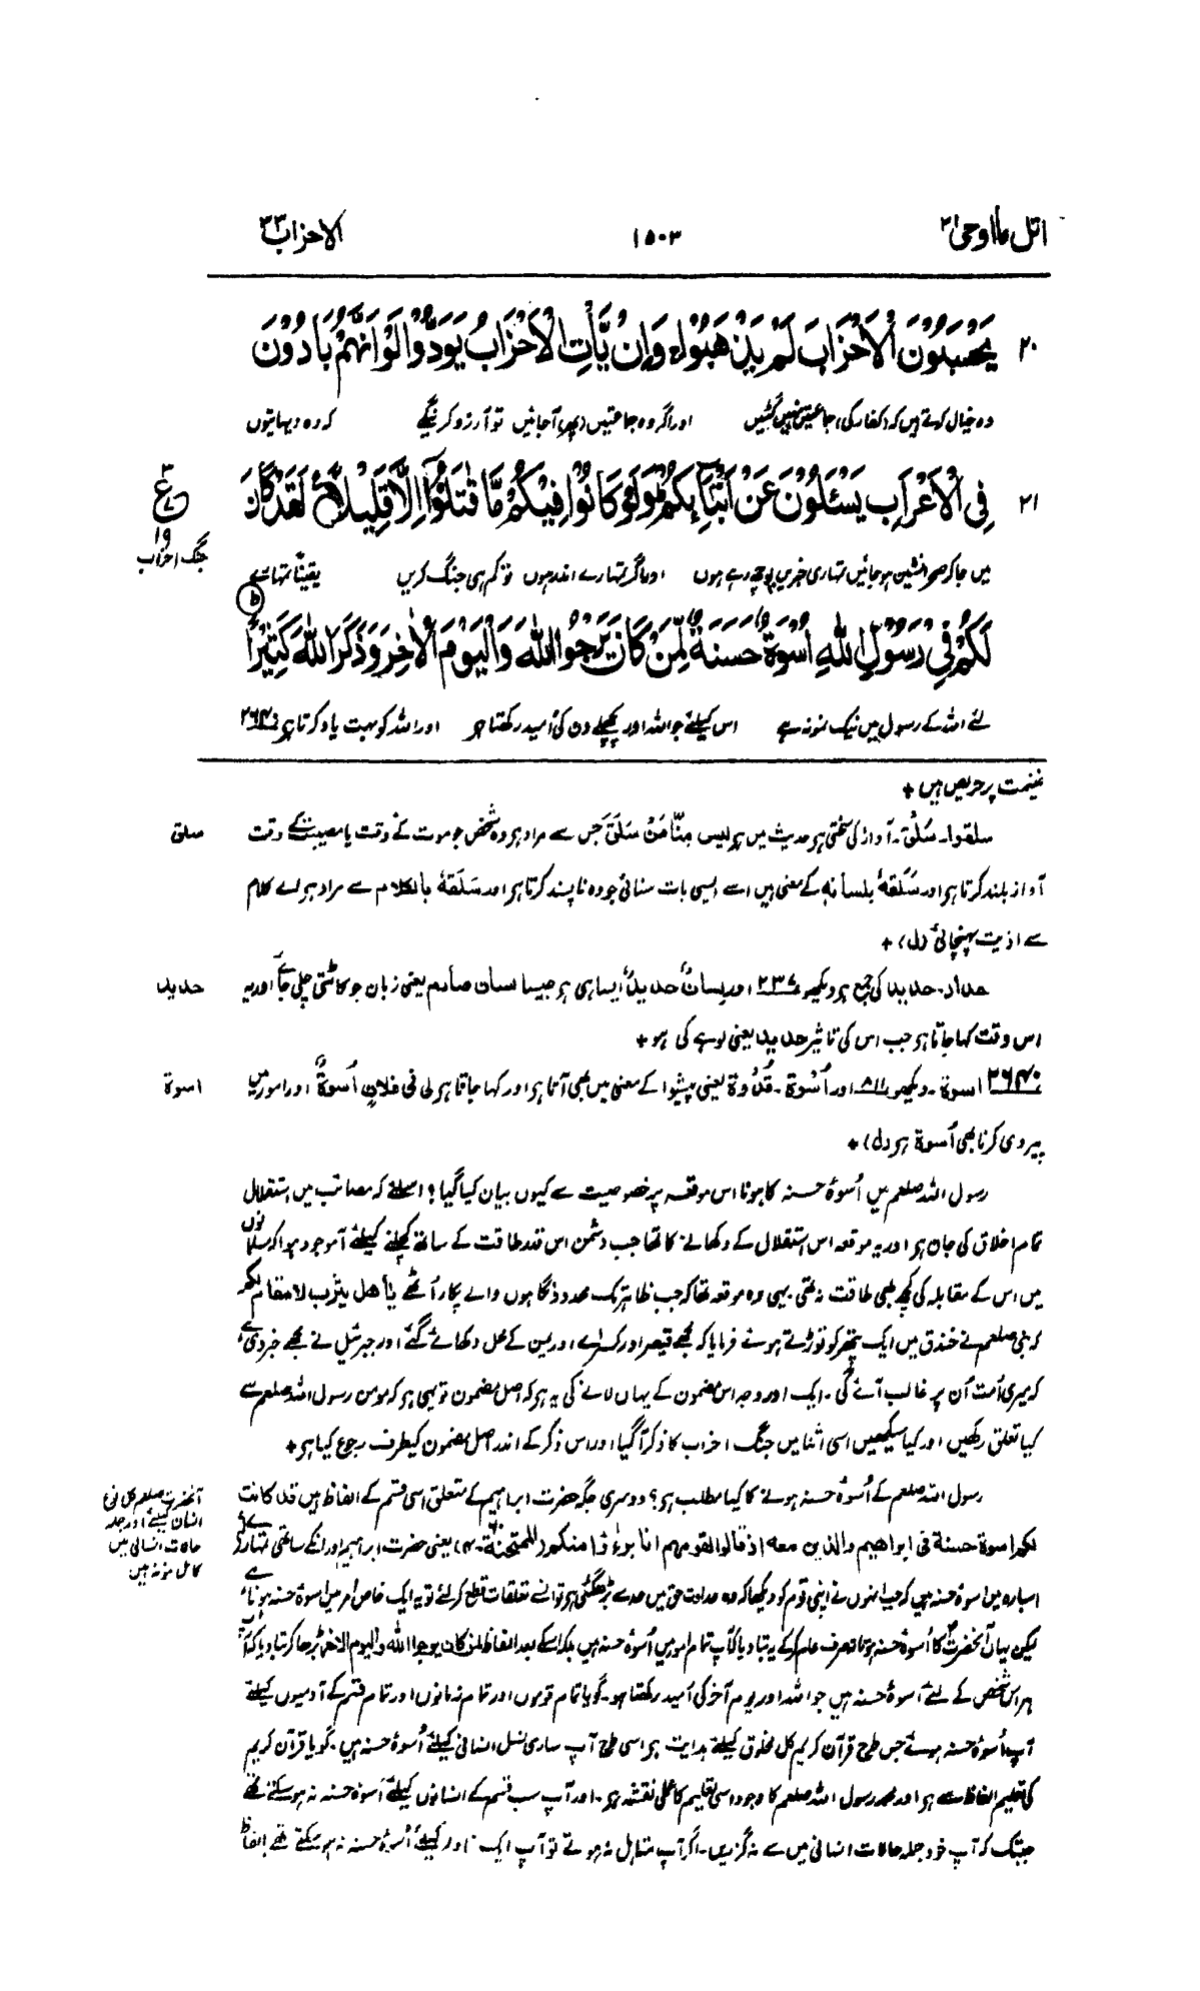 اتل ما اوحی ۲۱
۱۵۰۳
الاحزاب ۳۳
۲۰ یَحْسَبُوْنَ الْاَحْزَابَ لَمْ یَذْهَبُوْا ۚ وَاِنْ یَّاْتِ الْاَحْزَابُ یَوَدُّوْا لَوْ اَنَّهُمْ بَادُوْنَ
وہ خیال کرتے ہیں کہ (کفار کی) جماعتیں نہیں گئیں اور اگر وہ جماعتیں (پھر) آجائیں تو آرزو کرینگے کہ وہ دیہاتیوں
۲۱ فِی الْاَعْرَابِ یَسْئَلُوْنَ عَنْ اَنْۢبَآئِكُمْ ؕ وَلَوْ كَانُوْا فِیْكُمْ مَّا قٰتَلُوْۤا اِلَّا قَلِیْلًا ۠ لَقَدْ كَانَ
۲
ع
۱۹
جنگ احزاب
میں جا کر صحرانشین ہو جائیں تمہاری خبریں پوچھ رہے ہوں اور اگر تمہارے اندر ہوں تو کم ہی جنگ کریں یقیناً تمہارے
لَكُمْ فِیْ رَسُوْلِ اللّٰهِ اُسْوَةٌ حَسَنَةٌ لِّمَنْ كَانَ یَرْجُوا اللّٰهَ وَالْیَوْمَ الْاٰخِرَ وَذَكَرَ اللّٰهَ كَثِیْرًا
لئے اللہ کے رسول میں نیک نمونہ ہے اس کیلئے جو اللہ اور پچھلے دن کی اُمید رکھتا ہو اور اللہ کو بہت یاد کرتا ہو ۲۶۴۰
غنیمت پر حریص ہیں +
سلقوا۔ سَلْق۔ آواز کی سختی ہو حدیث میں ہو لیس مِنَّا مَنْ سَلَقَ جس سے مراد ہو وہ شخص جو موت کے وقت یا مصیبت کے وقت
سلق
آواز بلند کرتا ہو اور سَلَقَهٗ بلسانه کے معنی ہیں اسے ایسی بات سنائی جو وہ ناپسند کرتا ہو اور سَلَقَهٗ بالکلام سے مراد ہو اسے کلام
سے اذیت پہنچائی (ل) +
حداد۔ حدید کی جمع ہو دیکھو ۲۳۶ اور لسانٌ حدیدٌ ایسا ہی ہو جیسا لسان صارم یعنی زبان جو کاٹتی چلی جائے اور یہ
حدید
اس وقت کہا جاتا ہو جب اس کی تاثیر حدید یعنی لوہے کی ہو +
۲۶۴۰ اسوة۔ دیکھو اور اُسْوة۔ قُدْوة یعنی پیشوا کے معنی میں بھی آتا ہو اور کہا جاتا ہو لی فی فلان اُسوةٌ اور امور میں
اسوة
پیروی کرنا بھی اُسوة ہو (ل) +
رسول اللہ صلعم میں اُسوۂ حسنہ کا ہونا اس موقعہ پر خصوصیت سے کیوں بیان کیا گیا؟ اسلئے کہ مصائب میں استقلال
تمام اخلاق کی جان ہو اور یہ موقعہ اس استقلال کے دکھانے کا تھا جب دشمن اس قدر طاقت کے ساتھ کچلنے کیلئے آموجود ہوا کہ مسلمانوں
میں اس کے مقابلہ کی کچھ بھی طاقت نہ تھی یہی وہ موقعہ تھا کہ جب ظاہر تک محدود نگاہوں والے پکار اُٹھے یا اهل یثرب لا مقام لکم
کہ نبی صلعم نے خندق میں ایک پتھر کو توڑتے ہوئے فرمایا کہ مجھے قیصر اور کسرے اور یمن کے محل دکھائے گئے اور جبرئیل نے مجھے خبر دی ہے
کہ میری اُمت اُن پر غالب آئے گی۔ ایک اور وجہ اس مضمون کے یہاں لانے کی یہ ہو کہ اصل مضمون تو یہی ہو کہ مومن رسول اللہ صلعم سے
کیا تعلق رکھیں اور کیا سیکھیں اسی اثنا میں جنگ احزاب کا ذکر آگیا اور اس ذکر کے اندر اصل مضمون کیطرف رجوع کیا ہو +
رسول اللہ صلعم کے اُسوۂ حسنہ ہونے کا کیا مطلب ہو؟ دوسری جگہ حضرت ابراہیم کے متعلق اسی قسم کے الفاظ ہیں قد کانت
آنحضرت صلعم کل نوع
انسان کیلئے اور جملہ
حالات انسانی میں
کامل نمونہ ہیں
لکم اسوة حسنة فی ابراهیم والذین معه اذ قالوا لقومهم انا برءٰؤا منکم (الممتحنة۔۴) یعنی حضرت ابراہیم اور انکے ساتھی تمہارے لئے
اس بارہ میں اسوۂ حسنہ ہیں کہ جب انہوں نے اپنی قوم کو دیکھا کہ وہ عداوت حق میں حد سے بڑھ گئی ہو تو اسے تعلقات قطع کر لئے تو یہ ایک خاص امر میں اسوۂ حسنہ ہونا ہے
لیکن یہاں آنحضرت کا اُسوۂ حسنہ ہونا صرف عام کر کے یہ بتا دیا کہ آپ تمام امور میں اُسوۂ حسنہ ہیں بلکہ اسکے بعد الفاظ لمن کان یرجوا الله والیوم الاخر بڑھا کر بتا دیا کہ آپ
ہر اس شخص کے لئے اُسوۂ حسنہ ہیں جو اللہ اور یوم آخر کی اُمید رکھتا ہو۔ گویا تمام قوموں اور تمام زمانوں اور تمام قسم کے آدمیوں کیلئے
آپ اُسوۂ حسنہ ہوئے جس طرح قرآن کریم کل مخلوق کیلئے ہدایت ہو اسی طرح آپ ساری نسل انسانی کیلئے اُسوۂ حسنہ ہیں۔ گویا قرآن کریم
کی تعلیم الفاظ سے ہو اور محمد رسول اللہ صلعم کا وجود اسی تعلیم کا عملی نقشہ ہو۔ اور آپ سب قسم کے انسانوں کیلئے اُسوۂ حسنہ نہ ہو سکتے تھے
جبتک کہ آپ خود جملہ حالات انسانی میں سے نہ گزریں۔ اگر آپ متاہل نہ ہوتے تو آپ ایک کیلئے اُسوۂ حسنہ نہ ہو سکتے تھے